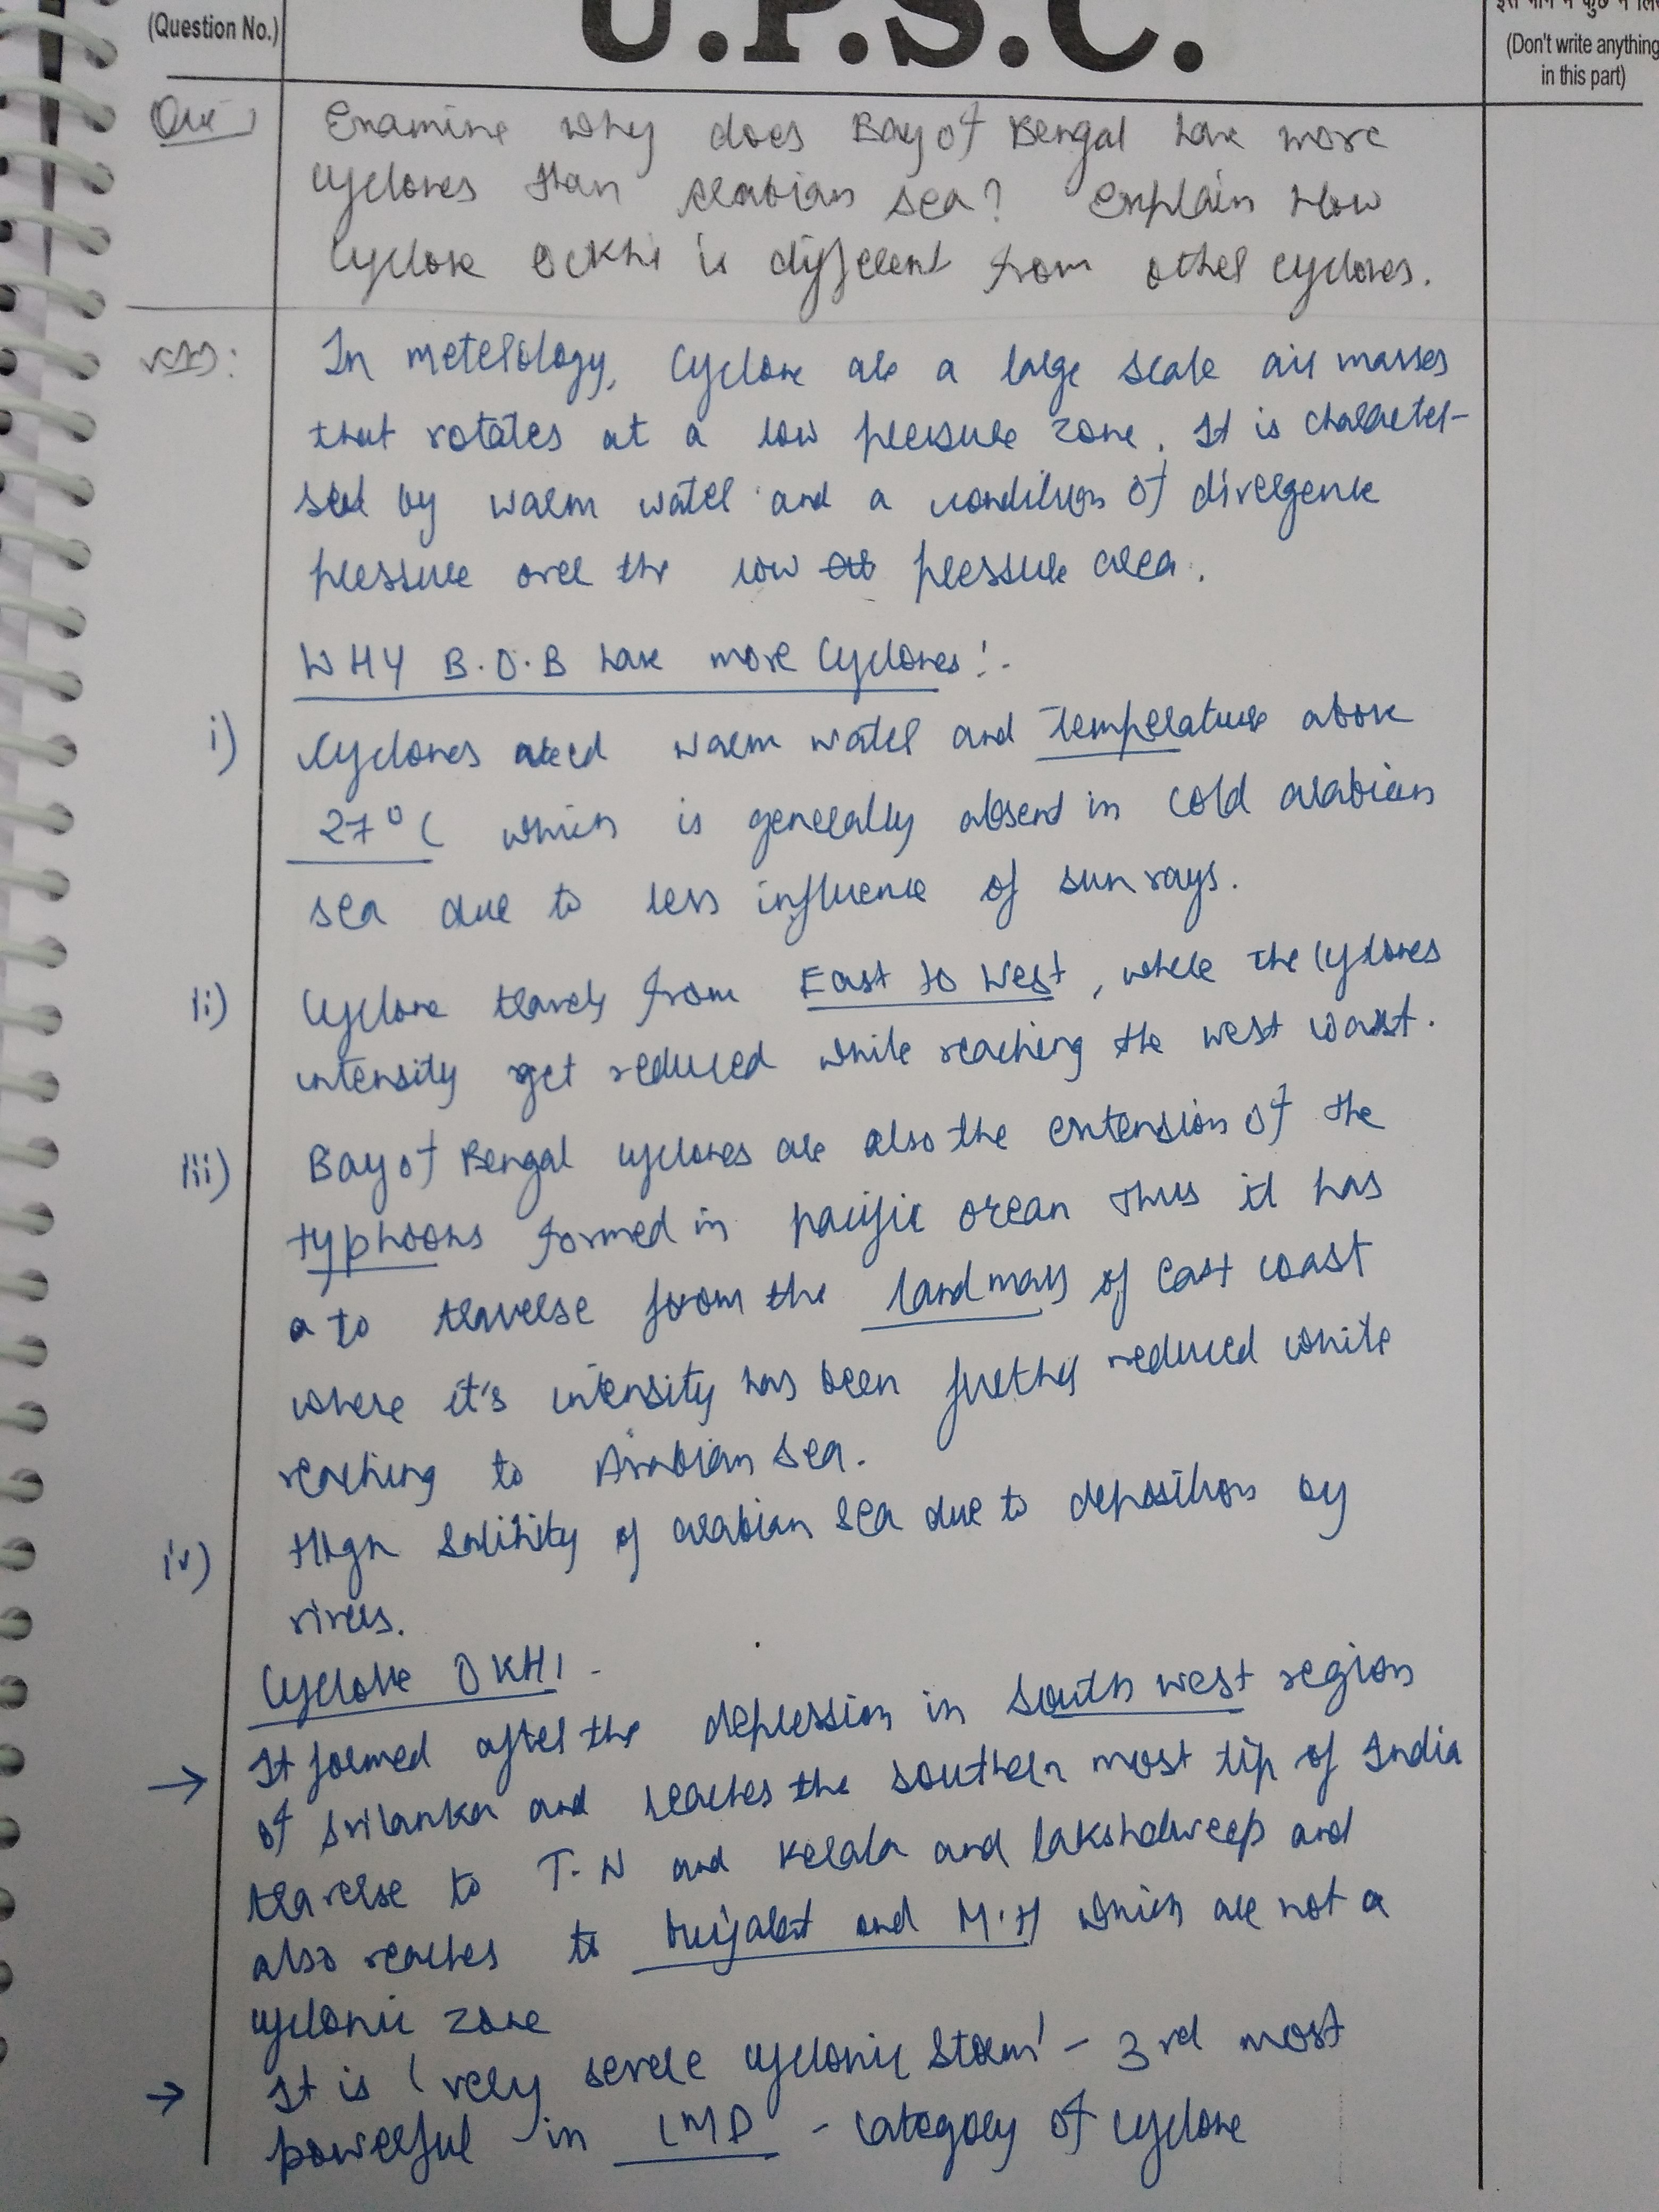 (Question No.)
U.P.S.C.
(Don't write anything
in this part)
Que 1
Examine why does Bay of Bengal have more
cyclones than Arabian sea? Explain How
Cyclone Ockhi is different from other cyclones.
Ans:
In meterology, Cyclone are a large scale air masses
that rotates at a low pressure zone. It is character-
sed by warm water and a condition of divergence
pressure over the low pressure area.
WHY B.O.B have more Cyclones:-
i) Cyclones need warm water and temperature above
27°C which is generally absent in cold arabian
sea due to less influence of sun rays.
ii) Cyclone travels from East to West, where the cyclones
intensity get reduced while reaching the west coast.
iii) Bay of Bengal cyclones are also the extension of the
typhoons formed in pacific ocean thus it has
a to traverse from the landmass of East coast
where it's intensity has been further reduced while
reaching to Arabian Sea.
iv) High Salinity of arabian sea due to deposition by
rivers.
Cyclone OKHI -
→ It formed after the depression in South west region
of Srilanka and reaches the southern most tip of India
traverse to T.N and Kerala and lakshdweep and
also reaches to Gujarat and M.H which are not a
cyclonic zone
→ It is 'very severe cyclonic Storm' - 3rd most
powerful in IMD - category of cyclone